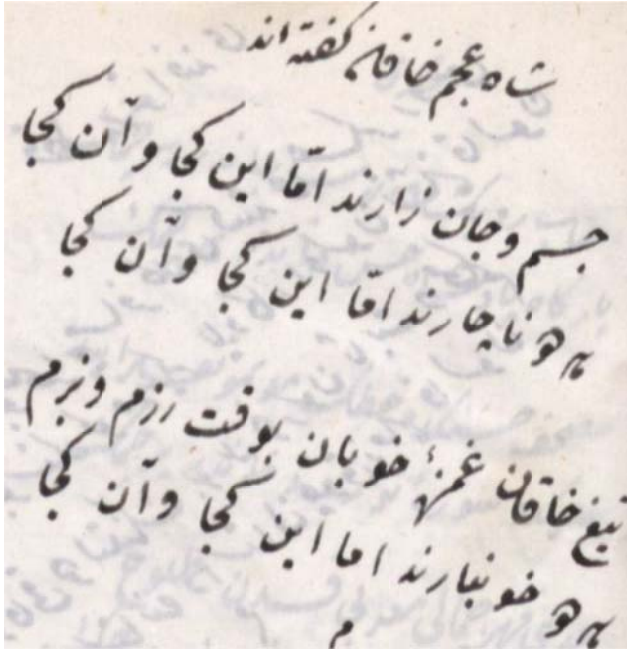 شاه عجم خاقان گفته اند
جسم و جان زارند امّا این کجا و آن کجا
هر دو ناچارند امّا این کجا و آن کجا
تیغ خاقان غمزهٔ خوبان بوقت رزم و بزم
هر دو خونبارند اما این کجا و آن کجا